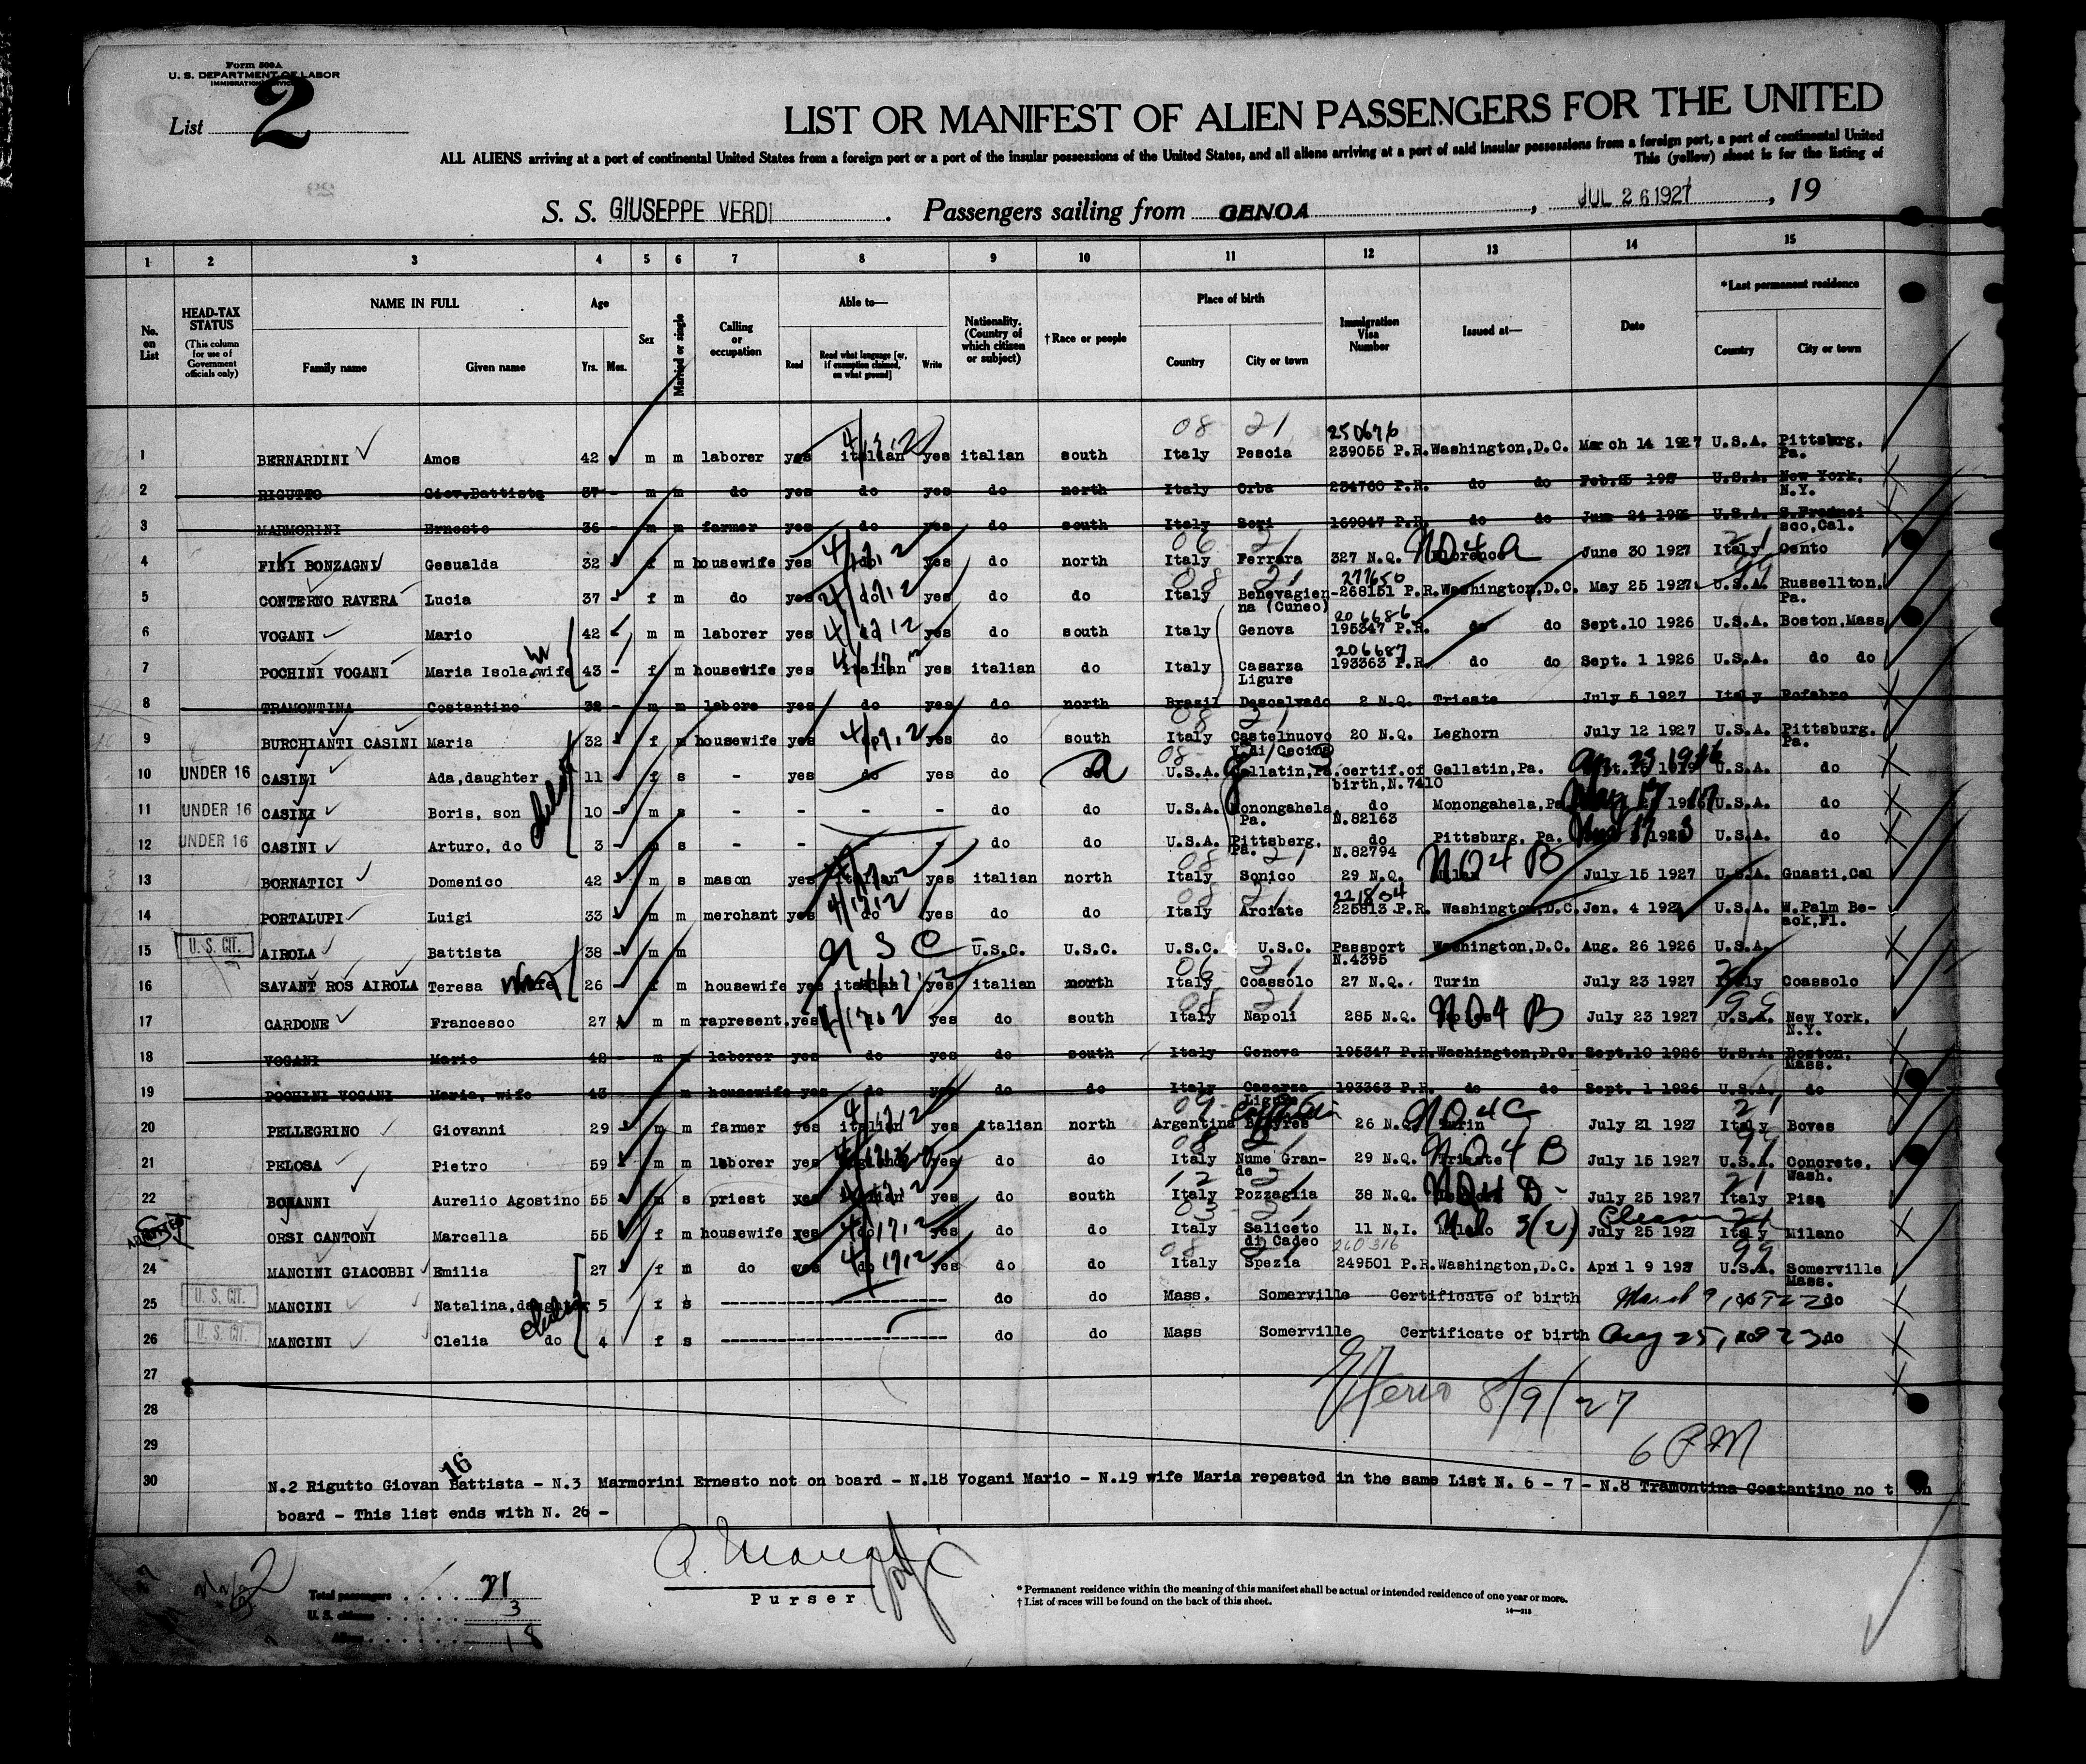 Form 500A
U. S. DEPARTMENT OF LABOR
IMMIGRATION SERVICE
List 2
LIST OR MANIFEST OF ALIEN PASSENGERS FOR THE UNITED
ALL ALIENS arriving at a port of continental United States from a foreign port or a port of the insular possessions of the United States, and all aliens arriving at a port of said insular possessions from a foreign port, a port of continental United
This (yellow) sheet is for the listing of
S. S. GIUSEPPE VERDI . Passengers sailing from GENOA , JUL 26 1927 , 19
1 2 3 4 5 6 7 8 9 10 11 12 13 14 15
No. on List
HEAD-TAX STATUS (This column for use of Government officials only)
NAME IN FULL Family name Given name
Age Yrs. Mos.
Sex
Married or single
Calling or occupation
Able to— Read Read what language [or, if exemption claimed, on what ground] Write
Nationality. (Country of which citizen or subject)
†Race or people
Place of birth Country City or town
Immigration Visa Number
Issued at—
Date
*Last permanent residence Country City or town
08 21 250676
1 BERNARDINI Amos 42 m m laborer yes italian yes italian south Italy Pescia 239055 P.R. Washington,D.C. March 14 1927 U.S.A. Pittsburg. Pa.
2 RIGUTTO Giov.Battista 37 - m m do yes do yes do north Italy Orba 234760 P.R. do do Feb. U.S.A. New York. N.Y.
3 MARMORINI Ernesto 36 - m m farmer yes do yes do south Italy 169047 P.R. do do 24 U.S.A. sco,Cal.
4 FINI BONZAGNI Gesualda 32 f m housewife yes do yes do north Italy Ferrara 327 N.Q. NQ 4 a June 30 1927 Italy Cento
277650
5 CONTERNO RAVERA Lucia 37 - f m do yes do yes do do Italy Benevagien-na (Cuneo) 268151 P.R. Washington,D.C. May 25 1927 U.S.A. Russellton. Pa.
206686
6 VOGANI Mario 42 - m m laborer yes do yes do south Italy Genova 195347 P.R. do do Sept.10 1926 U.S.A. Boston,Mass
206687
7 POCHINI VOGANI Maria Isola wife 43 - f m housewife yes italian yes italian do Italy Casarza Ligure 193363 P.R. do do Sept. 1 1926 U.S.A. do do
8 TRAMONTINA Costantino - m m labore yes do yes do north Brazil Descalvado 2 N.Q. Trieste July 5 1927 Italy Pofabro
08 21
9 BURCHIANTI CASINI Maria 32 f m housewife yes do yes do south Italy Castelnuovo V.di/Cecina 20 N.Q. Leghorn July 12 1927 U.S.A. Pittsburg. Pa.
10 UNDER 16 CASINI Ada,daughter 11 f s - yes do yes do do U.S.A. Gallatin,Pa. certif.of birth,N.7410 Gallatin,Pa. U.S.A. do
11 UNDER 16 CASINI Boris, son 10 - m s - - - - do do U.S.A. Monongahela Pa. do N.82163 Monongahela,Pa. U.S.A. do
12 UNDER 16 CASINI Arturo, do 3 s - - - do do U.S.A. Pittsberg. Pa. do N.82794 Pittsburg. Pa. U.S.A. do
13 BORNATICI Domenico 42 m s mason yes italian yes italian north Italy Sonico 29 N.Q. NQ 4 B July 15 1927 U.S.A. Guasti,Cal
221834
14 PORTALUPI Luigi 33 m m merchant yes do yes do do Italy Arciate 225813 P.R. Washington,D.C. Jan. 4 1927 U.S.A. W.Palm Be-ack,Fl.
15 U. S. CIT. AIROLA Battista 38 - m m U S C U.S.C. U.S.C. U.S.C. U.S.C. Passport N.4395 Washington,D.C. Aug. 26 1926 U.S.A.
16 SAVANT ROS AIROLA Teresa wife 26 f m housewife yes italian yes italian north Italy Coassolo 27 N.Q. Turin July 23 1927 Italy Coassolo
17 CARDONE Francesco 27 m m rapresent. yes yes do south Italy Napoli 285 N.Q. NQ 4 B July 23 1927 U.S.A. New York. N.Y.
18 VOGANI Mario 42 m m laborer yes do yes do south Italy Genova 195347 P.R. Washington,D.C. Sept.10 1926 U.S.A. Boston. Mass.
19 POCHINI VOGANI Maria, wife 43 m housewife yes do yes do do Italy Casarza Ligure 193363 P.R. do do Sept. 1 1926 U.S.A. do
20 PELLEGRINO Giovanni 29 m m farmer yes italian yes italian north Argentina 26 N.Q. Turin NQ 4 C July 21 1927 Italy Boves
21 PELOSA Pietro 59 m m laborer yes yes do do Italy Nume Gran-de 29 N.Q. Trieste NQ 4 B July 15 1927 U.S.A. Concrete. Wash.
22 BONANNI Aurelio Agostino 55 m s priest yes italian yes do south Italy Pozzaglia 38 N.Q. NQ 4 D - July 25 1927 Italy Pisa
ADMITTED ORSI CANTONI Marcella 55 f m housewife yes do yes do do Italy Saliceto di Cadeo 11 N.I. 3(2) July 25 1927 Italy Milano
260316
24 MANCINI GIACOBBI Emilia 27 f m do yes do yes do do Italy Spezia 249501 P.R. Washington,D.C. April 9 192 U.S.A. Somerville Mass.
25 U. S. CIT. MANCINI Natalina,daughter 5 f s do do Mass. Somerville Certificate of birth March 9, 1922 do
26 U. S. CIT. MANCINI Clelia do 4 f s do do Mass Somerville Certificate of birth Aug 25, 1923 do
27
28
8/9/27
29
6 PM
16
30 N.2 Rigutto Giovan Battista - N.3 Marmorini Ernesto not on board - N.18 Vogani Mario - N.19 wife Maria repeated in the same List N. 6 - 7 - N.8 Tramontina Costantino no t on
board - This list ends with N. 26 -
Total passengers . . . . 21
U. S. citizens . . . . 3
Aliens . . . . . . 18
Purser
* Permanent residence within the meaning of this manifest shall be actual or intended residence of one year or more.
† List of races will be found on the back of this sheet.